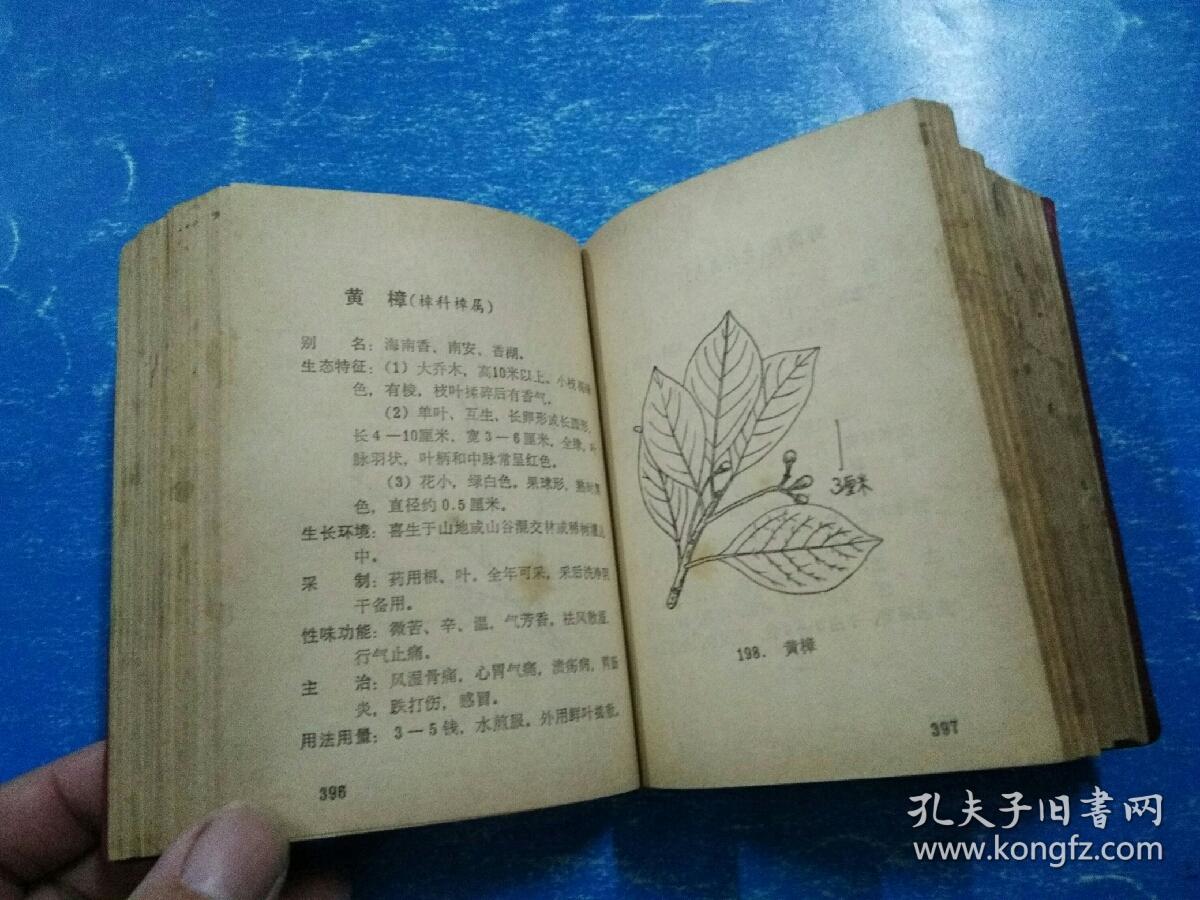 黄 樟(樟科樟属)
别 名：海南香、南安、香湖。
生态特征：(1) 大乔木，高10米以上。小枝
色，有棱，枝叶揉碎后有香气。
(2) 单叶、互生、长卵形或长圆形，
长4—10厘米，宽3—6厘米，全缘，叶
脉羽状，叶柄和中脉常呈红色。
(3) 花小，绿白色。果球形，熟时黑
色，直径约0.5厘米。
生长环境：喜生于山地或山谷混交林或稀树灌丛
中。
采 制：药用根、叶。全年可采，采后洗净阴
干备用。
性味功能：微苦、辛、温，气芳香，祛风散湿，
行气止痛。
主 治：风湿骨痛，心胃气痛，溃疡病，胃肠
炎，跌打伤，感冒。
用法用量：3—5钱，水煎服。外用鲜叶捣敷。
396
3厘米
198. 黄樟
397
孔夫子旧书网
www.kongfz.com